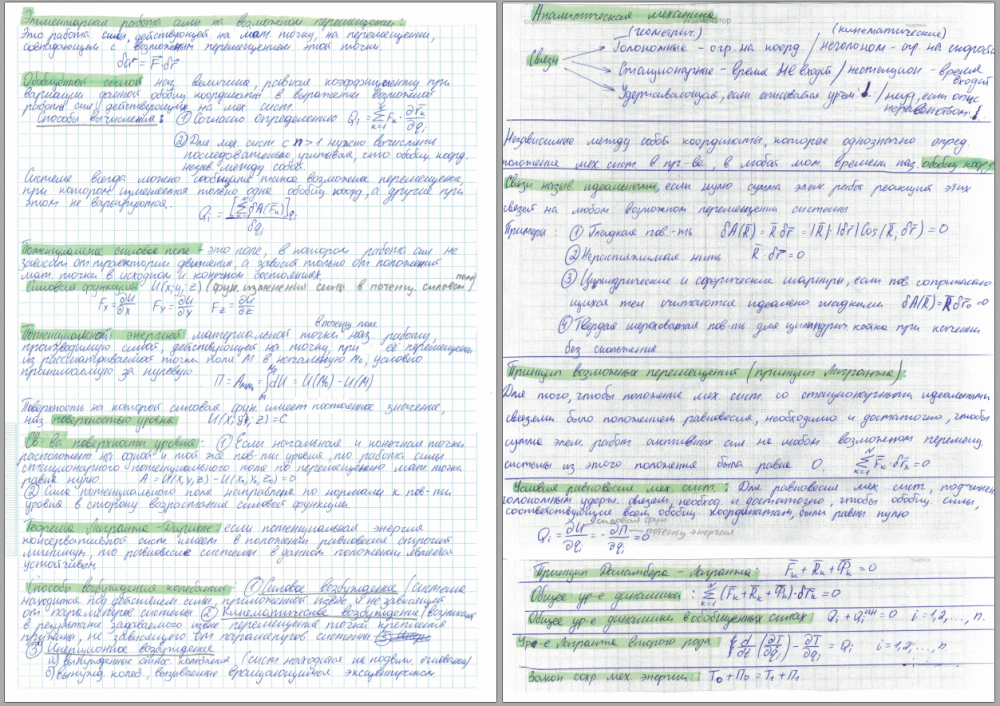 Элементарная работа силы на возможном перемещении:
Это работа силы, действующей на мат. точку, на перемещении,
совпадающем с возможным перемещением этой точки.
δA = F̄·δr̄
Обобщенной силой наз. величина, равная коэффициенту при
вариации данной обобщ. координаты в выражении возможной
работы сил, действующих на мех. сист.
Способы вычисления: ① Согласно определению Qi = Σ F̄к · ∂r̄к/∂qi
② Для мех. сист с n>1 нужно вычислять
последовательно, учитывая, что обобщ. коорд.
незав. между собой.
Системе всегда можно сообщить такое возможное перемещение,
при котором изменяется только одна обобщ коорд, а другие при
этом не варьируются.
Qi = [Σ δA(F̄к)]qi / δqi
Потенциальное силовое поле - это поле, в котором работа сил не
зависит от траектории движения, а зависит только от положения
мат. точки в исходном и конечном состояниях
Силовая функция U(x;y;z) (функ. изменения силы в потенц. силовом поле)
Fx = ∂U/∂x Fy = ∂U/∂y Fz = ∂U/∂z
в потенц. поле
Потенциальной энергией материальной точки наз. работу,
производимую силой, действующей на точку, при её перемещении
из рассматриваемой точки поля M в начальную M₀, условно
принимаемую за нулевую
П = Aмм₀ = ∫dU = U(M₀) - U(M)
Поверхность на которой силовая функ. имеет постоянное значение,
наз поверхностью уровня U(x;y;z) = C
Св-ва поверхности уровня: ① Если начальная и конечная точки
расположены на одной и той же пов-ти уровня, то работа силы
стационарного потенциального поля по перемещению мат. точки
равна нулю. A = U(x,y,z) - U(x₀,y₀,z₀) = 0
② Сила потенциального поля направлена по нормали к пов-ти
уровня в сторону возрастания силовой функции.
Теорема Лагранжа-Дирихле: если потенциальная энергия
консервативной сист. имеет в положении равновесия строгий
минимум, то равновесие системы в данном положении является
устойчивым
Способы возбуждения колебаний: ① Силовое возбуждение (система
находится под действием силы, приложенной извне, и не зависящей
от параметров системы) ② Кинематическое возбуждение (возникает
в результате задаваемого извне перемещения точки крепления
пружины, не зависящего от параметров системы)
③ Инерционное возбуждение
а) вынужденные относ. колебания (сист находится на подвиж. основании)
б) вынужд. колеб., вызываемые вращающимся эксцентриком.
Аналитическая механика
(геометрич.) (кинематические)
Связи
Голономные - огр. на коорд / неголоном - огр. на скорость
Стационарные - время НЕ входит / нестационар - время входит
Удерживающая, если описывается уравн.! / неуд, если опис неравенством!
Независимые между собой координаты, которые однозначно опред.
положение мех сист. в пр-ве в любой мом. времени наз. обобщ коорд.
Связи назыв. идеальными, если нулю сумма элем. работ реакций этих
связей на любом возможном перемещении системы
Примеры: ① Гладкая пов-ть δA(R̄) = R̄·δr̄ = |R̄|·|δr̄| Cos(R̄; δr̄) = 0
② Нерастяжимая нить R̄·δr̄ = 0
③ Цилиндрические и сферические шарниры, если пов соприкасаю-
щихся тел считаются идеально гладкими δA(R̄) = R̄·δr̄₀ = 0
④ Твердая шероховатая пов-ть для цилиндрич. катка при качении
без скольжения
Принцип возможных перемещений (принцип Лагранжа):
Для того, чтобы положение мех сист. со стационарными идеальными
связями было положением равновесия, необходимо и достаточно, чтобы
сумма элем. работ активных сил на любом возможном перемещ.
системы из этого положения была равна 0. Σ F̄к · δr̄к = 0
Условия равновесия мех сист.: Для равновесия мех сист, подчинен
голономным удерж. связям, необход и достаточно, чтобы обобщ. силы,
соответствующие всем обобщ. координатам, были равны нулю
Qi = ∂U/∂qi = -∂П/∂qi = 0 силовая функ. потенц энергия
Принцип Даламбера - Лагранжа F̄к + R̄к + Φ̄к = 0
Общее ур-е динамики: Σ (F̄к + R̄к + Φ̄к)·δr̄к = 0
Общее ур-е динамики в обобщенных силах Qi + Qi^ин = 0 i = 1,2,..., n.
Ур-е Лагранжа второго рода { d/dt (∂T/∂q̇i) - ∂T/∂qi = Qi i = 1,2,..., n
Закон сохр мех. энергии: T₀ + П₀ = T₁ + П₁